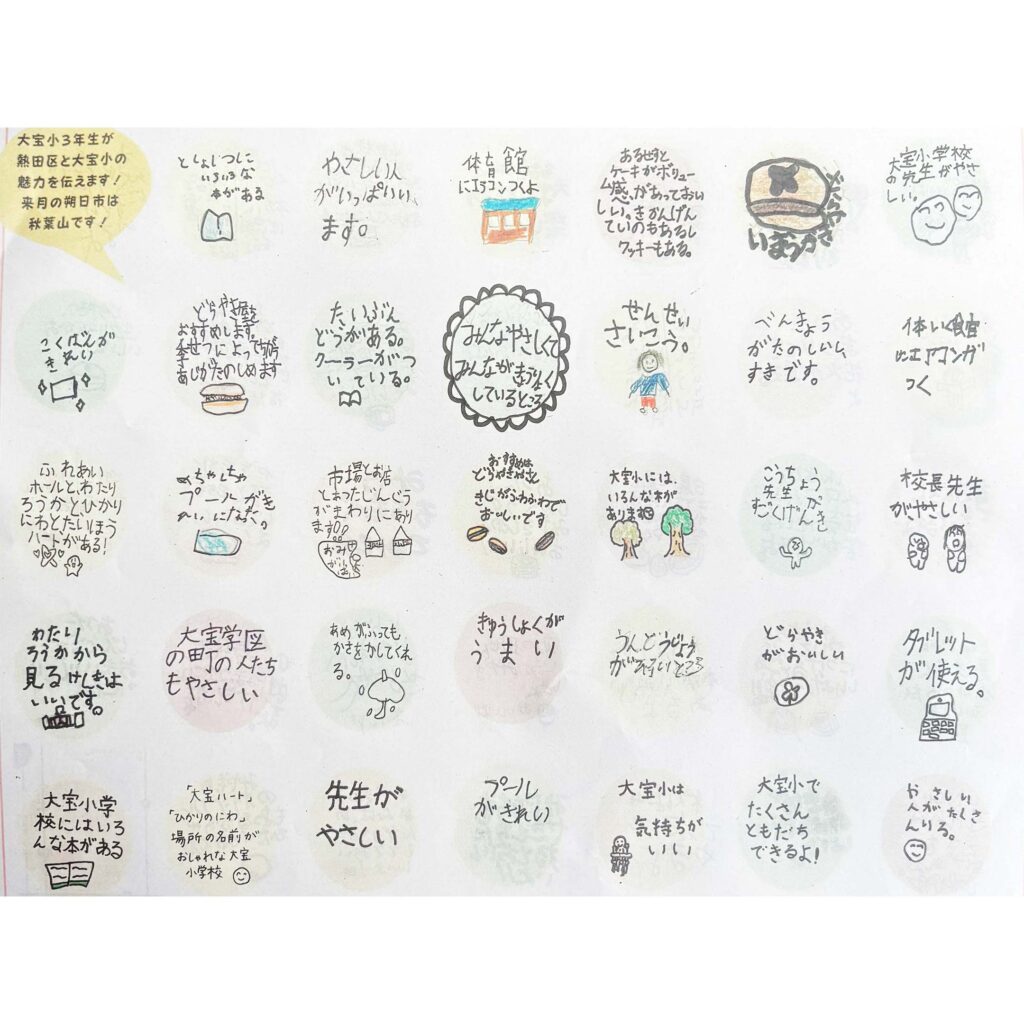 大宝小3年生が
熱田区と大宝小の
魅力を伝えます!
来月の朔日市は
秋葉山です!
としょしつに
いろいろな
本がある
やさしい人
がいっぱいい
ます。
体育館
にエアコンつくよ
ケーキがボリュー
ム感があっておい
しい。きかんげん
ていのもあるし
クッキーもある。
どらやき
大宝小学校
の先生がやさ
しい。
こくばんが
きれい
どらやき屋を
おすすめします。
季せつによって
あじがたのしめます
たいぶん
どうがある。
クーラーがつ
いている。
みんなやさしくて
みんながきょうりょく
しているところ
せんせい
さいこう。
べんきょう
がたのしいし、
すきです。
にエアコンが
つく
ふれあい
ホールと、わたり
ろうかと、ひかり
にわとたいほう
ハートがある!
めちゃくちゃ
プールがき
れいになった。
市場とお店
とあったじんぐう
がまわりにあり
ます!!
おみ
おすすめは
どらやきやさ
きじがふわふわで
おいしいです
大宝小には、
いろんな本が
あります
こうちょう
先生が
すごくげんき
校長先生
がやさしい
わたり
ろうかから
見るけしきは
いいです。
大宝学区
の町の人たち
もやさしい
あめがふっても
かさをかしてくれ
る。
きゅうしょくが
うまい
うんどうじょう
が
どらやき
がおいしい
タブレット
が使える。
大宝小学
校にはいろ
んな本がある
「大宝ハート」
「ひかりのにわ」
場所の名前が
おしゃれな大宝
小学校
先生が
やさしい
プール
がきれい
大宝小は
気持ちが
いい
大宝小で
たくさん
ともだち
できるよ!
やさしい
人がたくさ
んいる。